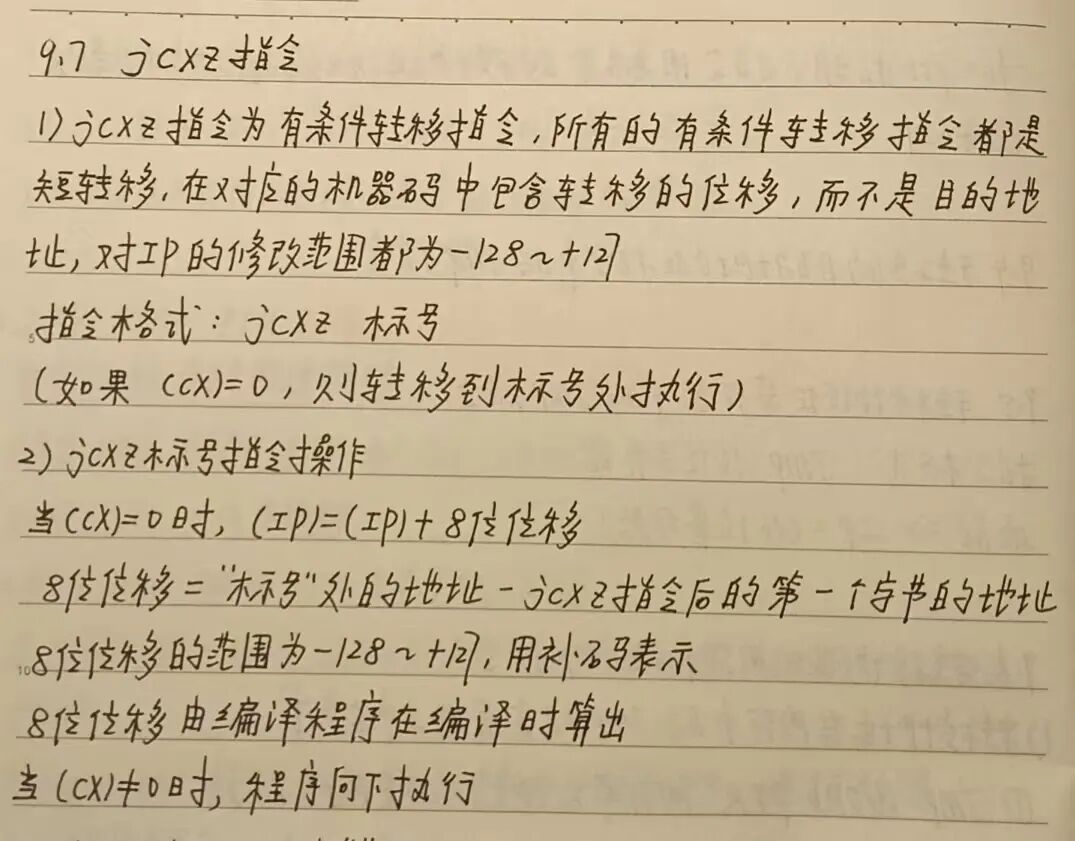 9.7 jcxz指令
1) jcxz指令为有条件转移指令,所有的有条件转移指令都是
短转移,在对应的机器码中包含转移的位移,而不是目的地
址,对IP的修改范围都为-128~+127
指令格式: jcxz 标号
(如果 (cx)=0,则转移到标号处执行)
2) jcxz标号指令操作
当(cx)=0时, (IP)=(IP)+8位位移
8位位移="标号"处的地址-jcxz指令后的第一个字节的地址
8位位移的范围为-128~+127,用补码表示
8位位移由编译程序在编译时算出
当(cx)≠0时,程序向下执行